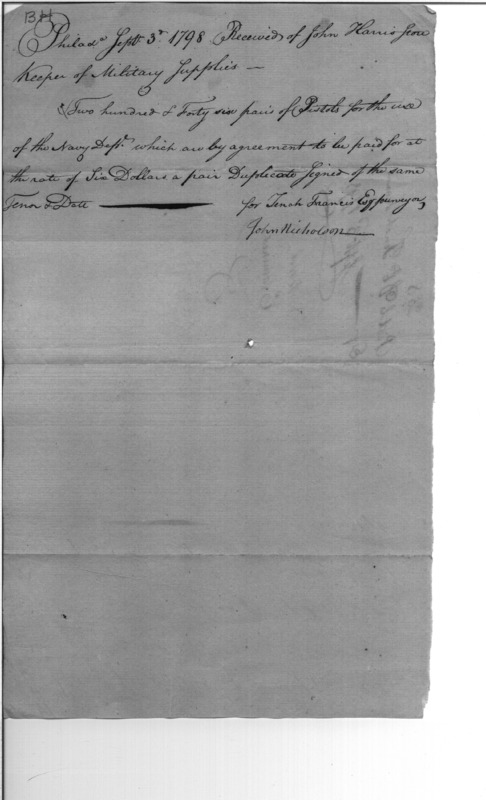 BH
Philada Sept 3r 1798 Received of John Harris Store
Keeper of Military Supplies —
Two hundred & Forty six pairs of Pistols for the use
of the Navy Dept. which are by agreement to be paid for at
the rate of Six Dollars a pair Duplicate Signed of the same
Tenor & Date — for Tench Francis Esqr purveyor
John Nicholson